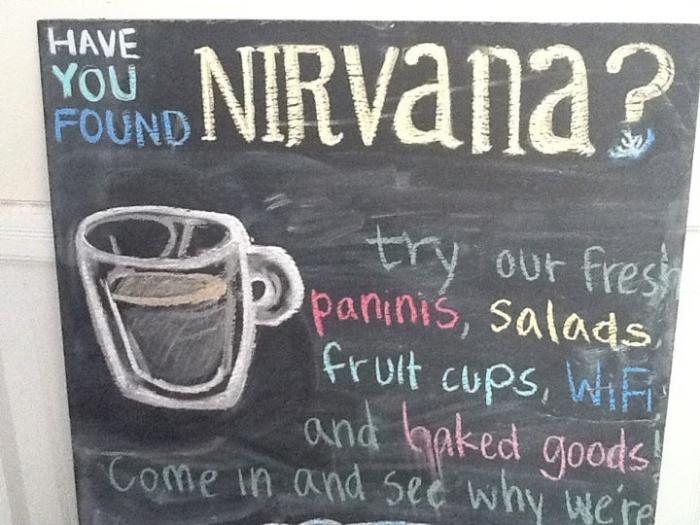 HAVE YOU FOUND NIRvana?
try our fresh
paninis, salads,
fruit cups, WiFi
and baked goods!
Come in and see why we're